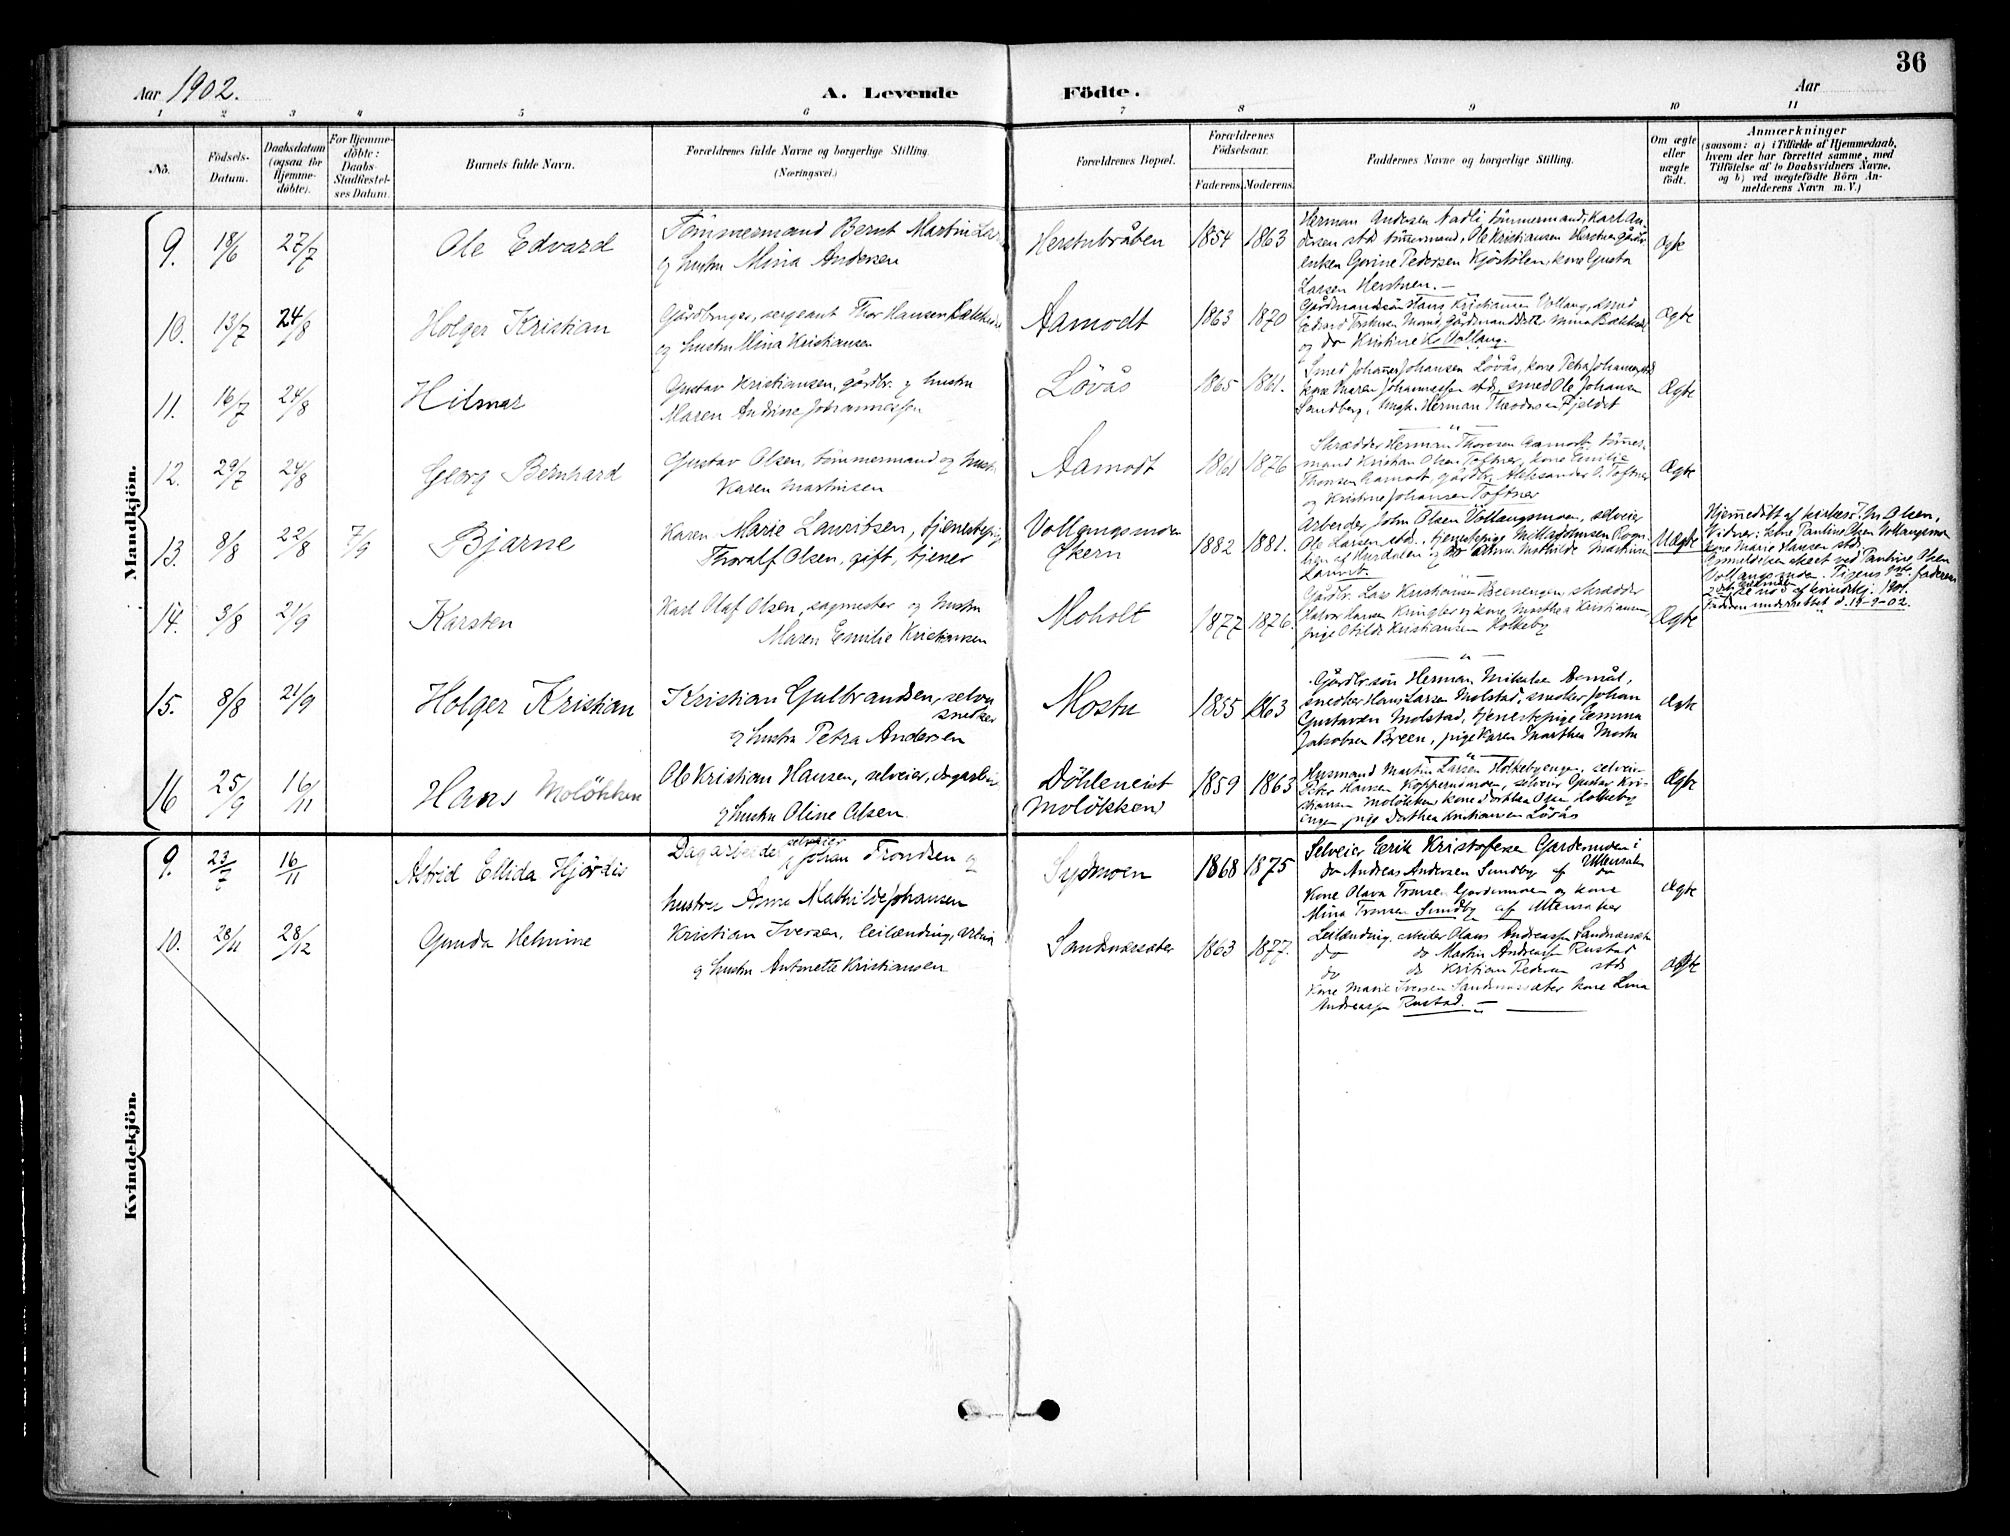 36
Aar 1902.
A. Levende Födte.
Aar
1 2 3 4 5 6 7 8 9 10 11
No.
Födsels-Datum.
Daabsdatum (ogsaa for Hjemmedöbte).
For Hjemmedöbte: Daabs Stadfæstelses Datum.
Barnets fulde Navn.
Forældrenes fulde Navne og borgerlige Stilling.
(Næringsvei.)
Forældrenes Bopæl.
Forældrenes Födselsaar.
Faderens. Moderens.
Faddernes Navne og borgerlige Stilling.
Om ægte eller uægte födt.
Anmærkninger
(saasom: a) i Tilfælde af Hjemmedaab,
hvem der har forrettet samme, med
Tilföielse af to Daabsvidners Navne.
og b) ved uegtefödte Börn An-
melderens Navn m. V.)
Mandkjön.
9. 18/6 27/7 Ole Edvard
Tömmermand Bernt Martin
og hustru Mina Andersen
Herstubråten 1854 1863
Herman Andersen tömmermand, Karl An-
dersen stds tömmermand, Ole Kristiansen Herstuen gårdbr.
enken Gorine Pedersen Kjöstölen, kone Gusta
Larsen Herstuen.
Ægte
10. 13/7 24/8 Holger Kristian
Gårdbruger, sergeant Thor Hansen
og hustru Mina Kristiansen
Aamodt 1863 1870
Gårdmandssön Hans Kristiansen Vollaug, smed
og do Kristine K. Vollaug.
Ægte
11. 16/7 24/8 Hilmar
Gustav Kristiansen, gårdbr. og hustru
Maren Andrine Johannessen
Lövås 1865 1861.
Smed Johannes Johansen Lövås, kone Petra Johannessen stds
kone Maren Johannessen stds, smed Ole Johansen
Sandberg, ungk. Herman Theodorsen Fjeldet
Ægte
12. 29/7 24/8 Georg Bernhard
Gustav Olsen, tömmermand og hustru
Karen Martinsen
Aamodt 1861 1876
Skrædder Herman Thoresen Aamodt tömmer-
mand Kristian Olsen Toftner, kone Emilie
Thoresen Aamodt, gårdbr. Aleksander O. Toftner
og Kristine Johansen Toftner
Ægte
13. 8/8 22/8 7/9 Bjarne
Karen Marie Lauritsen, tjenestepige
Thoralf Olsen, gift, tjener
Vollaugsmoen
Økern 1882 1881.
Arbeider John Olsen Vollaugsmoen, selveier
Ole Larsen stds, tjenestepige
af Hurdalen og do Anna Mathilde Martinsen
Uægte
Hjemmedöbt af kirkes. M Olsen,
Vidner: kone Pauline Olsen Vollaugsmoen
kone Marie Hansen stds.
Anmeldelsen skeet ved Pauline Olsen
Vollaugsmoen.
Faderen underrettet d. 19-9-02.
14. 3/8 21/9 Karsten
Karl Olaf Olsen, sagmester og hustru
Maren Emilie Kristiansen
Moholt 1877 1876.
Gårdbr. Lars Kristiansen Breenengen, skrædder
Halvor Hansen Kringler og kone Marthea Kristiansen
pige Otilde Kristiansen Holkeby
Ægte
15. 8/8 21/9 Holger Kristian
Kristian Gulbrandsen, selvei
snedker
og hustru Petra Andersen
Mostu 1855 1863
Gårdbr. sön Herman Mikkelsen
snedker Hans Larsen Molstad, snedker Johan
Gustavsen Molstad, tjenestepige Emma
Jakobsen Breen, pige Karen Marthea Mostu
Ægte
16 25/9 16/11 Hans Molökken
Ole Kristian Hansen, selveier, dagarbeider
og hustru Oline Olsen.
Döhleneiet
Molökken 1859 1863
Husmand Martin Larsen Holkebyengen, selveier
Peter Hansen Koppersmoen, selveier Gustav Kri-
stiansen Molökken kone Dorthea Olsen Holkeby
engen pige Dorthea Kristiansen Lövås
Ægte
Kvindekjön.
9. 23/7 16/11 Astrid Ellida Hjördis
Dagarbeider selveier Johan Trondsen og
hustru Anna Mathilde Johansen
Sydmoen 1868 1875
Selveier Erik Kristofersen Gardermoen i
do Andreas Andersen Sundby af Ullensaker
Kone Olava Tronsen Gardermoen og kone
Mina Tronsen Sundby af Ullensaker
Ægte
10. 28/11 28/12 Gunda Helmine
Kristian Iversen, leilænding,
og hustru Antonette Kristiansen
Sandnæssæter 1863 1877.
Leilænding, Olaus Andreassen Sandnæssæter
do do Martin Andreassen Rustad
do do Kristian Pedersen stds
Kone Marie Iversen Sandnæssæter kone Lina
Andreassen Rustad.
Ægte